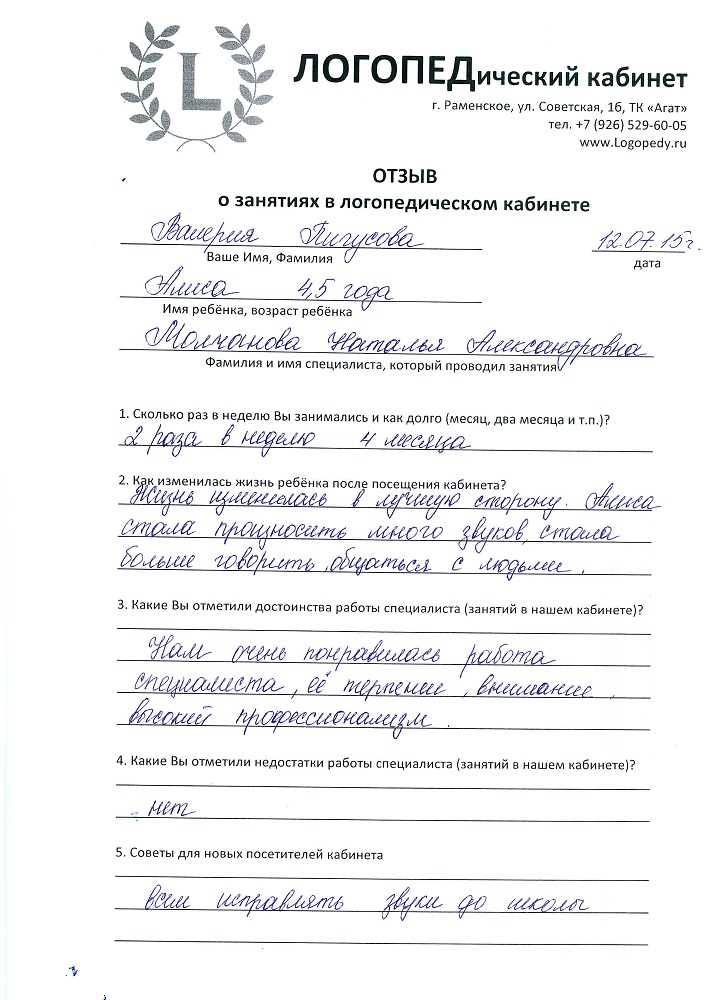 L
ЛОГОПЕДический кабинет
г. Раменское, ул. Советская, 16, ТК «Агат»
тел. +7 (926) 529-60-05
www.Logopedy.ru
ОТЗЫВ
о занятиях в логопедическом кабинете
Валерия Пигусова 12.07.15г.
Ваше Имя, Фамилия дата
Алиса 4,5 года
Имя ребёнка, возраст ребёнка
Молчанова Наталья Александровна
Фамилия и имя специалиста, который проводил занятия
1. Сколько раз в неделю Вы занимались и как долго (месяц, два месяца и т.п.)?
2 раза в неделю 4 месяца
2. Как изменилась жизнь ребёнка после посещения кабинета?
Жизнь изменилась в лучшую сторону. Алиса
стала произносить много звуков, стала
больше говорить, общаться с людьми.
3. Какие Вы отметили достоинства работы специалиста (занятий в нашем кабинете)?
Нам очень понравилась работа
специалиста, её терпение, внимание,
высокий профессионализм.
4. Какие Вы отметили недостатки работы специалиста (занятий в нашем кабинете)?
нет
5. Советы для новых посетителей кабинета
всем исправлять звуки до школы